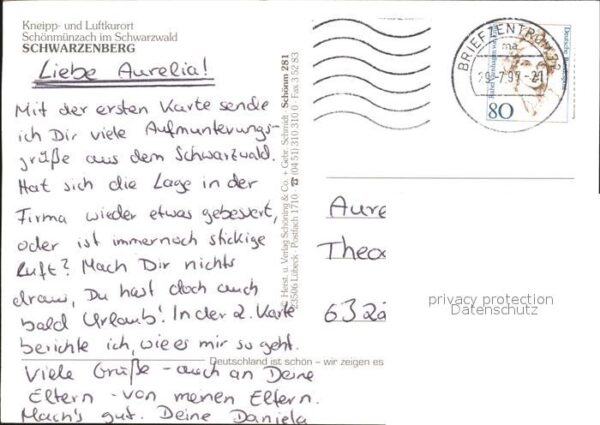 Kneipp- und Luftkurort
Schönmünzach im Schwarzwald
SCHWARZENBERG
Liebe Aurelia!
Mit der ersten Karte sende
ich Dir viele Aufmunterungs-
grüße aus dem Schwarzwald.
Hat sich die Lage in der
Firma wieder etwas gebessert,
oder ist immernoch stickige
Luft? Mach Dir nichts
draus, Du hast doch auch
bald Urlaub! In der 2. Karte
berichte ich, wie es mir so geht.
Viele Grüße - auch an Deine
Eltern - von meinen Eltern.
Mach's gut. Deine Daniela
© Herst. u. Verlag Schöning & Co. + Gebr. Schmidt · Schönm 281
23506 Lübeck · Postfach 1710 · ☎ (04 51) 310 310 0 · Fax 3 52 83
Deutschland ist schön – wir zeigen es
BRIEFZENTRUM
ma
-7.99-21
Deutsche Bundespost
80
Aure
Theo
632
privacy protection
Datenschutz